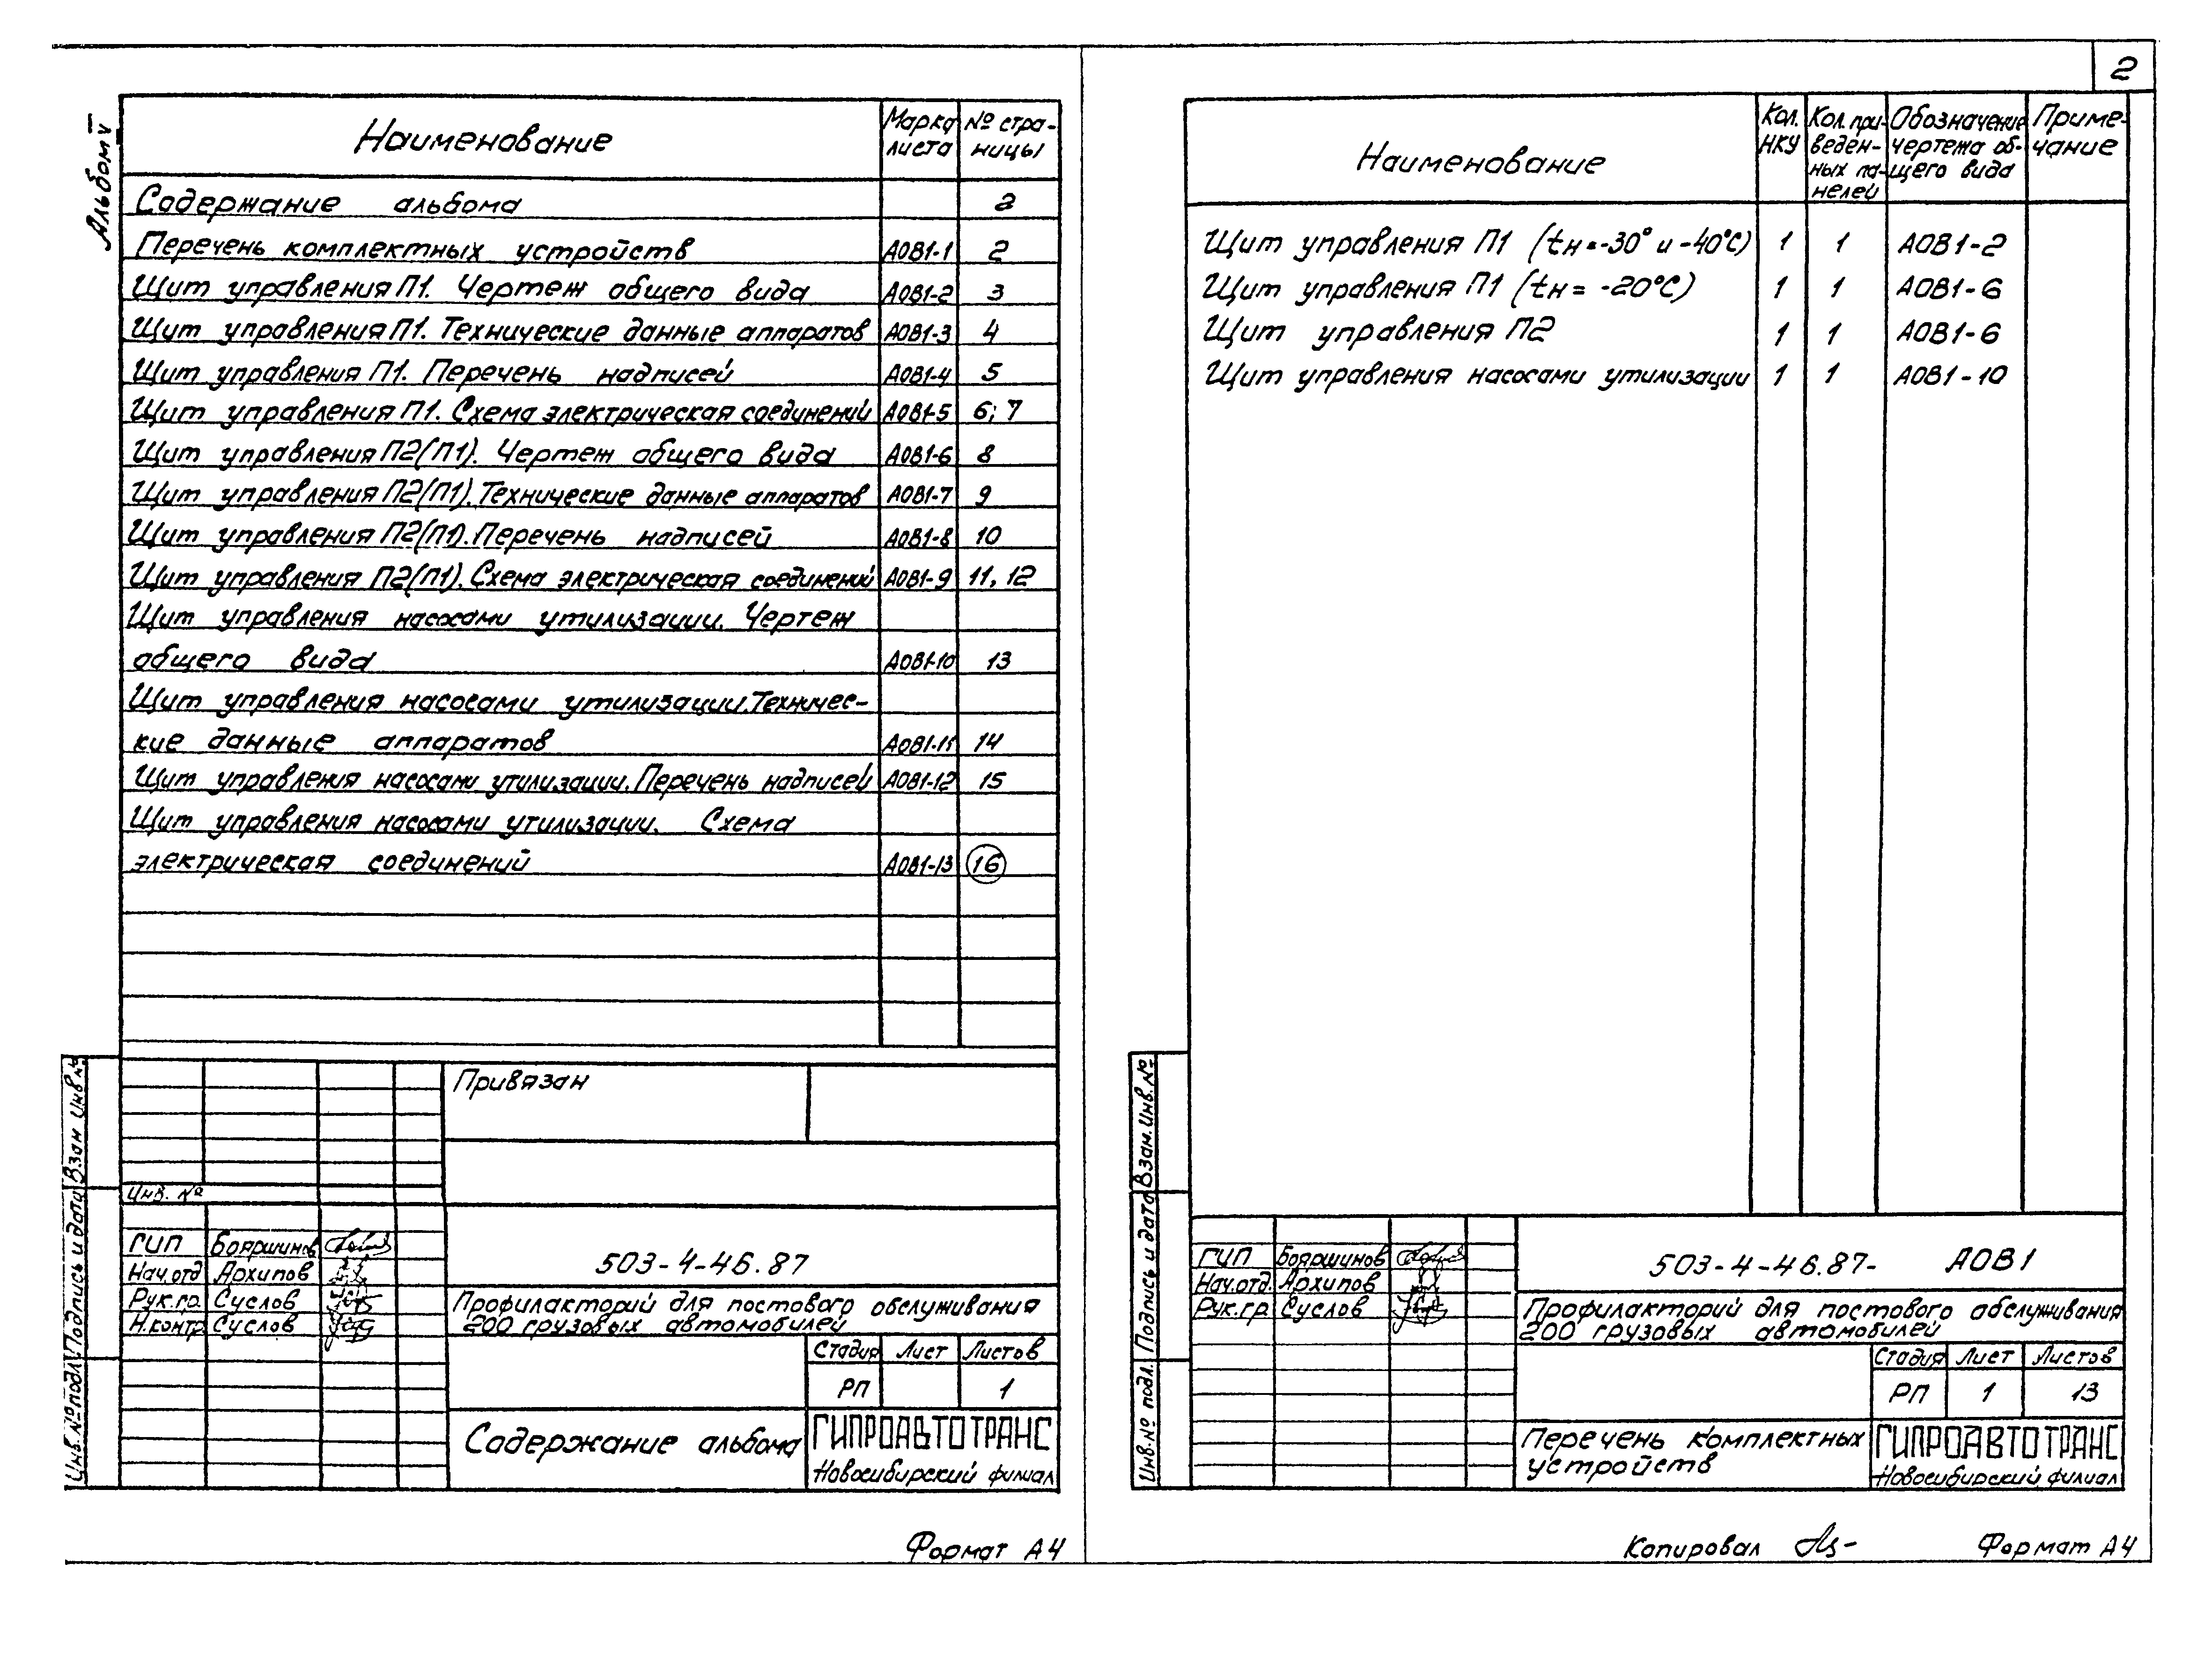 2
Альбом V
Наименование
Марка листа
№ стра-
ницы
Содержание альбома 2
Перечень комплектных устройств АОВ1-1 2
Щит управления П1. Чертеж общего вида АОВ1-2 3
Щит управления П1. Технические данные аппаратов АОВ1-3 4
Щит управления П1. Перечень надписей АОВ1-4 5
Щит управления П1. Схема электрическая соединений АОВ1-5 6; 7
Щит управления П2(П1). Чертеж общего вида АОВ1-6 8
Щит управления П2(П1). Технические данные аппаратов АОВ1-7 9
Щит управления П2(П1). Перечень надписей АОВ1-8 10
Щит управления П2(П1). Схема электрическая соединений АОВ1-9 11, 12
Щит управления насосами утилизации. Чертеж
общего вида АОВ1-10 13
Щит управления насосами утилизации. Техничес-
кие данные аппаратов АОВ1-11 14
Щит управления насосами утилизации. Перечень надписей АОВ1-12 15
Щит управления насосами утилизации. Схема
электрическая соединений АОВ1-13 16
Привязан
Инв. №
ГИП Бояршинов
Нач.отд Архипов
Рук.гр. Суслов
Н.контр Суслов
503-4-46.87
Профилакторий для постового обслуживания
200 грузовых автомобилей
Стадия Лист Листов
РП 1
Содержание альбома
ГИПРОАВТОТРАНС
Новосибирский филиал
Инв.№ подл. Подпись и дата Взам Инв №
Формат А4
Наименование
Кол.
НКУ
Кол. при-
веден-
ных па-
нелей
Обозначение
чертежа об-
щего вида
Приме-
чание
Щит управления П1 (tн=-30° и -40°С) 1 1 АОВ1-2
Щит управления П1 (tн= -20°С) 1 1 АОВ1-6
Щит управления П2 1 1 АОВ1-6
Щит управления насосами утилизации 1 1 АОВ1-10
ГИП Бояршинов
Нач.отд. Архипов
Рук.гр. Суслов
503-4-46.87- АОВ1
Профилакторий для постового обслуживания
200 грузовых автомобилей
Стадия Лист Листов
РП 1 13
Перечень комплектных
устройств
ГИПРОАВТОТРАНС
Новосибирский филиал
Инв.№ подл. Подпись и дата Взам.Инв.№
Копировал
Формат А4